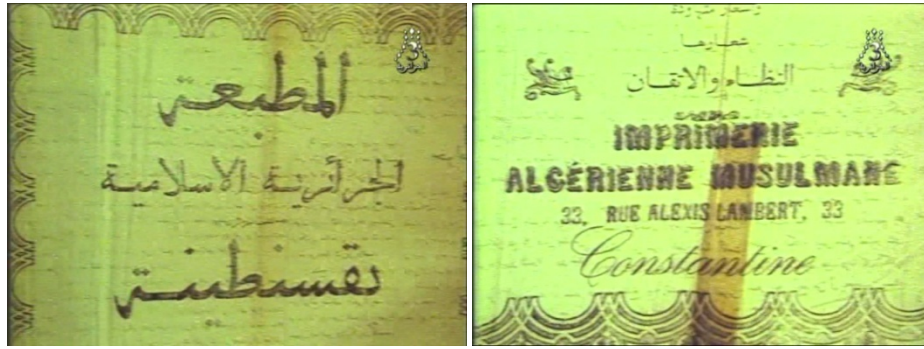 المطبعة
الجزائرية الاسلامية
بقسنطينة
شعارها
النظام والاتقان
IMPRIMERIE
ALGÉRIENNE MUSULMANE
33, RUE ALEXIS LAMBERT, 33
Constantine